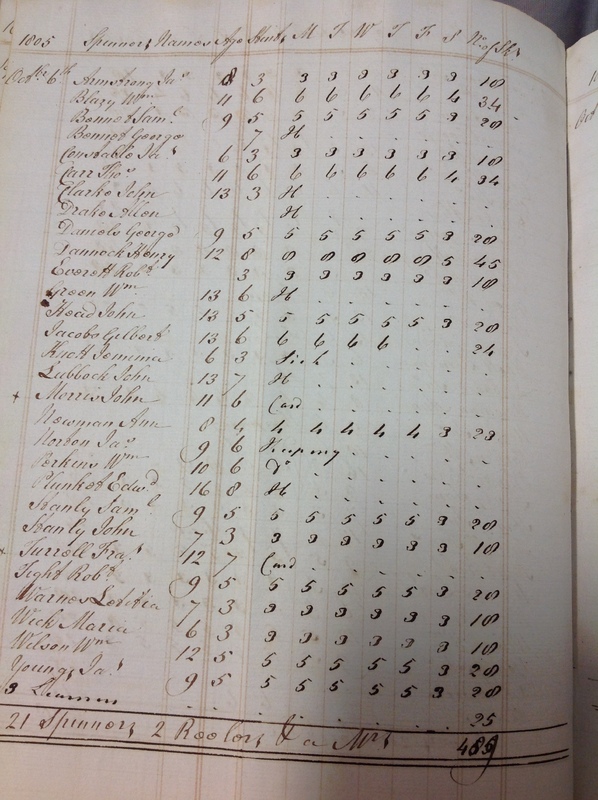 1805 Spinners Names Age Hunds M T W T F S No of Sks
Octbr 6th Armstrong Jas 8 3 3 3 3 3 3 3 18
Blazy Wm 11 6 6 6 6 6 6 4 34
Bennet Saml 9 5 5 5 5 5 5 3 28
Bennet George 7 H . . . . . .
Constable Jas 6 3 3 3 3 3 3 3 18
Carr Thos 11 6 6 6 6 6 6 4 34
Clarke John 13 3 H . . . . . .
Drake Allen H . . . . . .
Daniels George 9 5 5 5 5 5 5 3 28
Dannock Henry 12 8 8 8 8 8 8 5 45
Everett Robt 3 3 3 3 3 3 3 18
Green Wm 13 6 H . . . . . .
Head John 13 5 5 5 5 5 5 3 28
Jacobs Gilbert 13 6 6 6 6 6 . . 24
Knott Jemima 6 3 Sick . . . . .
Lubbock John 13 7 H . . . . . .
+ Morris John 11 6 Card . . . . . .
Newman Ann 8 4 4 4 4 4 4 3 23
Norton Jas 9 6 Keeping . . . . .
Perkins Wm 10 6 Do . . . . . .
Plunket Edwd 16 8 H . . . . . .
Stanly Saml 9 5 5 5 5 5 5 3 28
Stanly John 7 3 3 3 3 3 3 3 18
x Turrell Fras 12 7 Card . . . . . .
Tight Robt 9 5 5 5 5 5 5 3 28
Warnes Letitia 7 3 3 3 3 3 3 3 18
Wick Maria 6 3 3 3 3 3 3 3 18
Wilson Wm 12 5 5 5 5 5 5 3 28
Youngs Jas 9 5 5 5 5 5 5 3 28
3 Learners . . . . . . . . 25
21 Spinners 2 Reelers & a Mrs 489